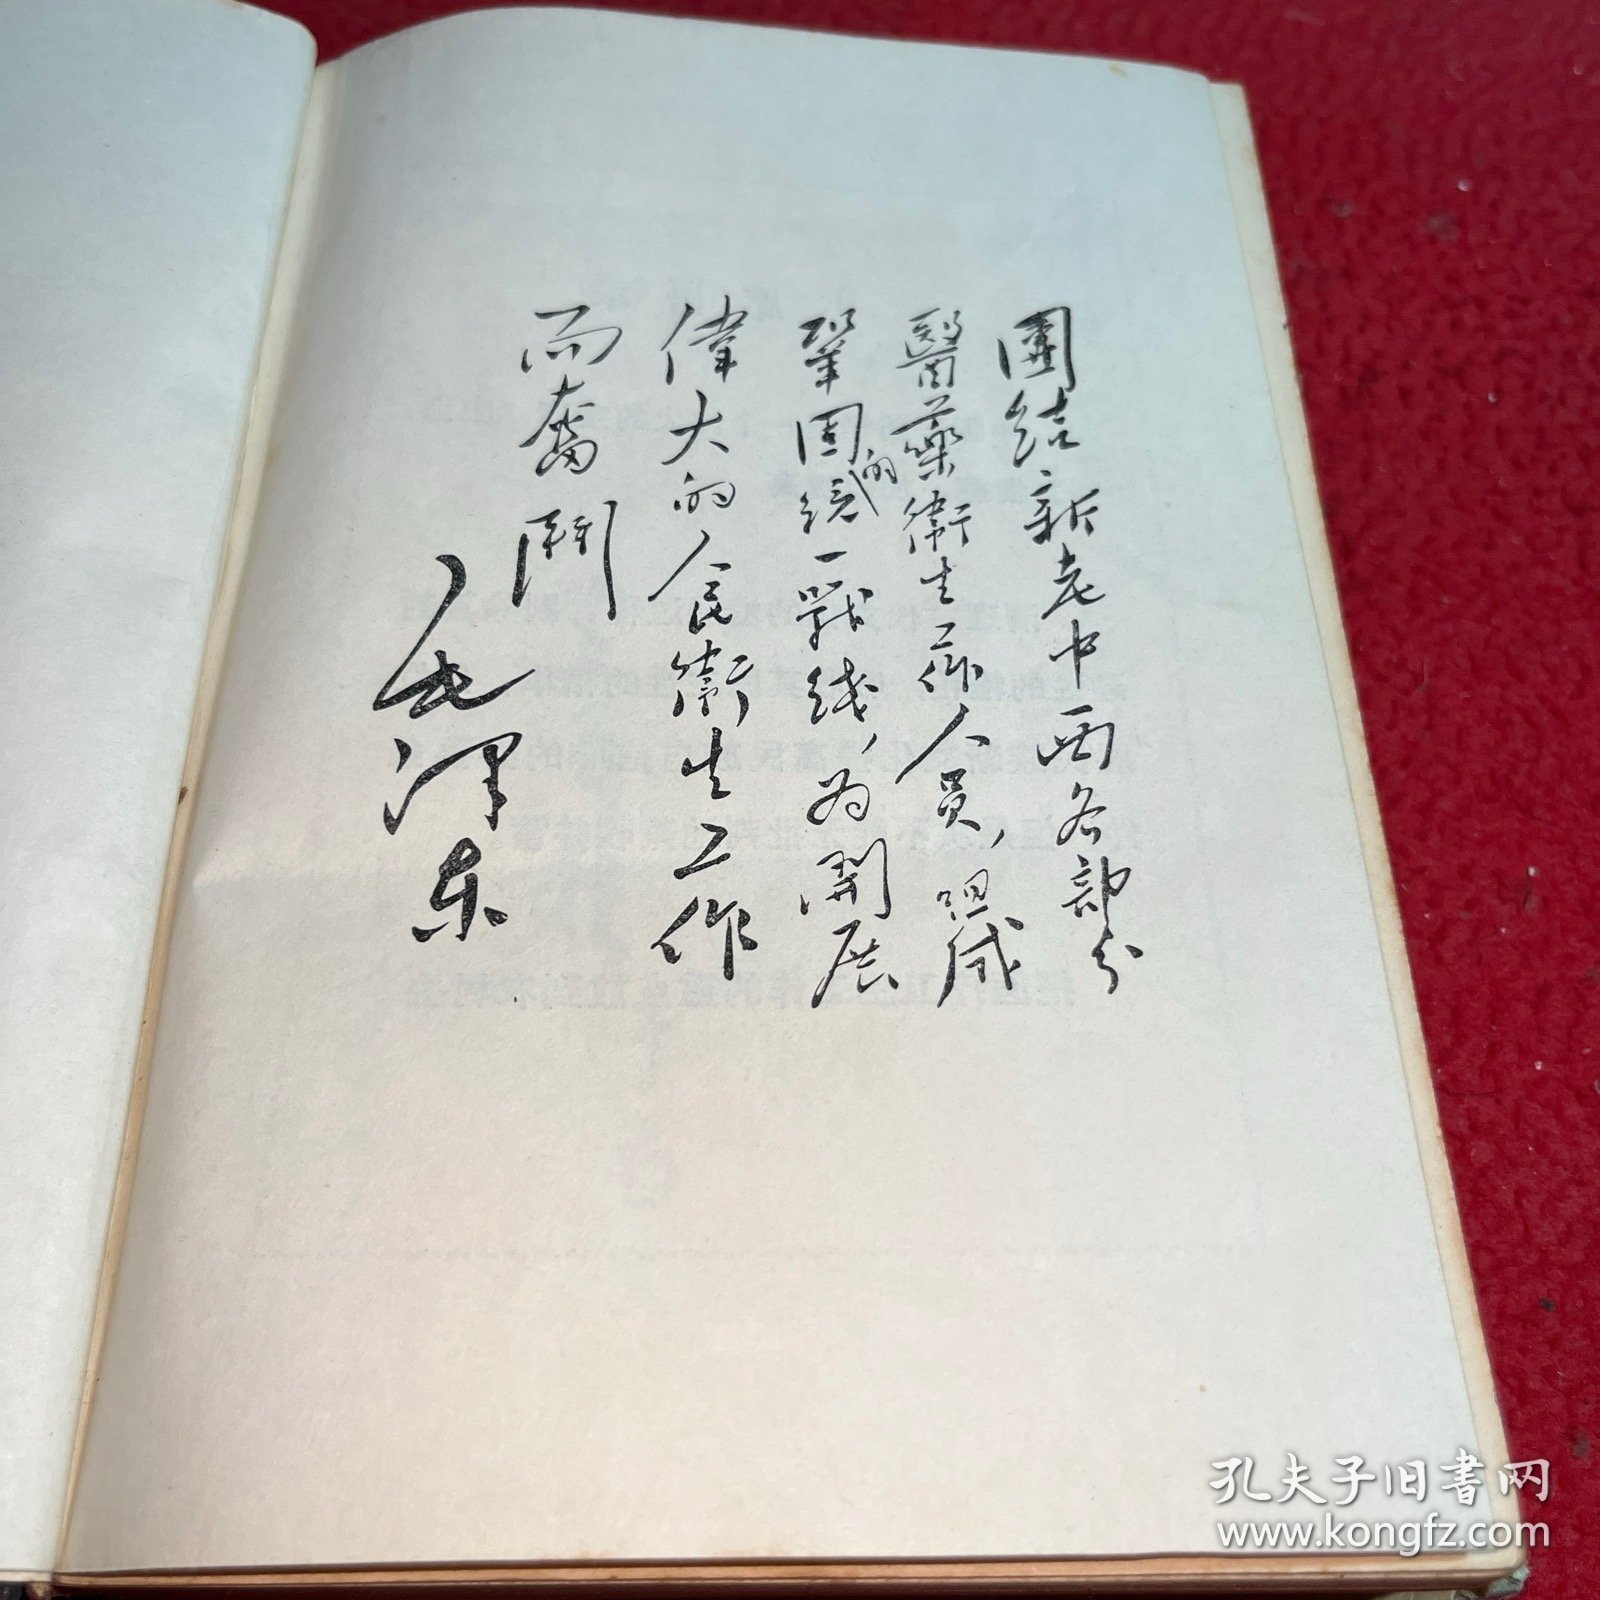 團结新老中西各部分
醫藥衛生工作人员，组成
鞏固的统一戰线，为開展
偉大的人民衛生工作
而奮鬥
毛泽东
孔夫子旧書网
www.kongfz.com